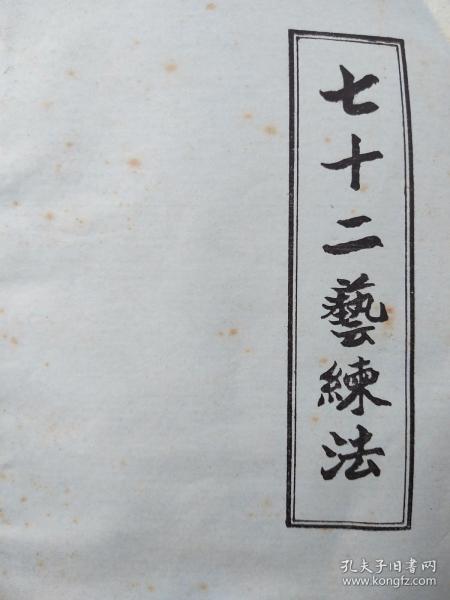 七十二藝練法
孔夫子旧书网
www.kongfz.com